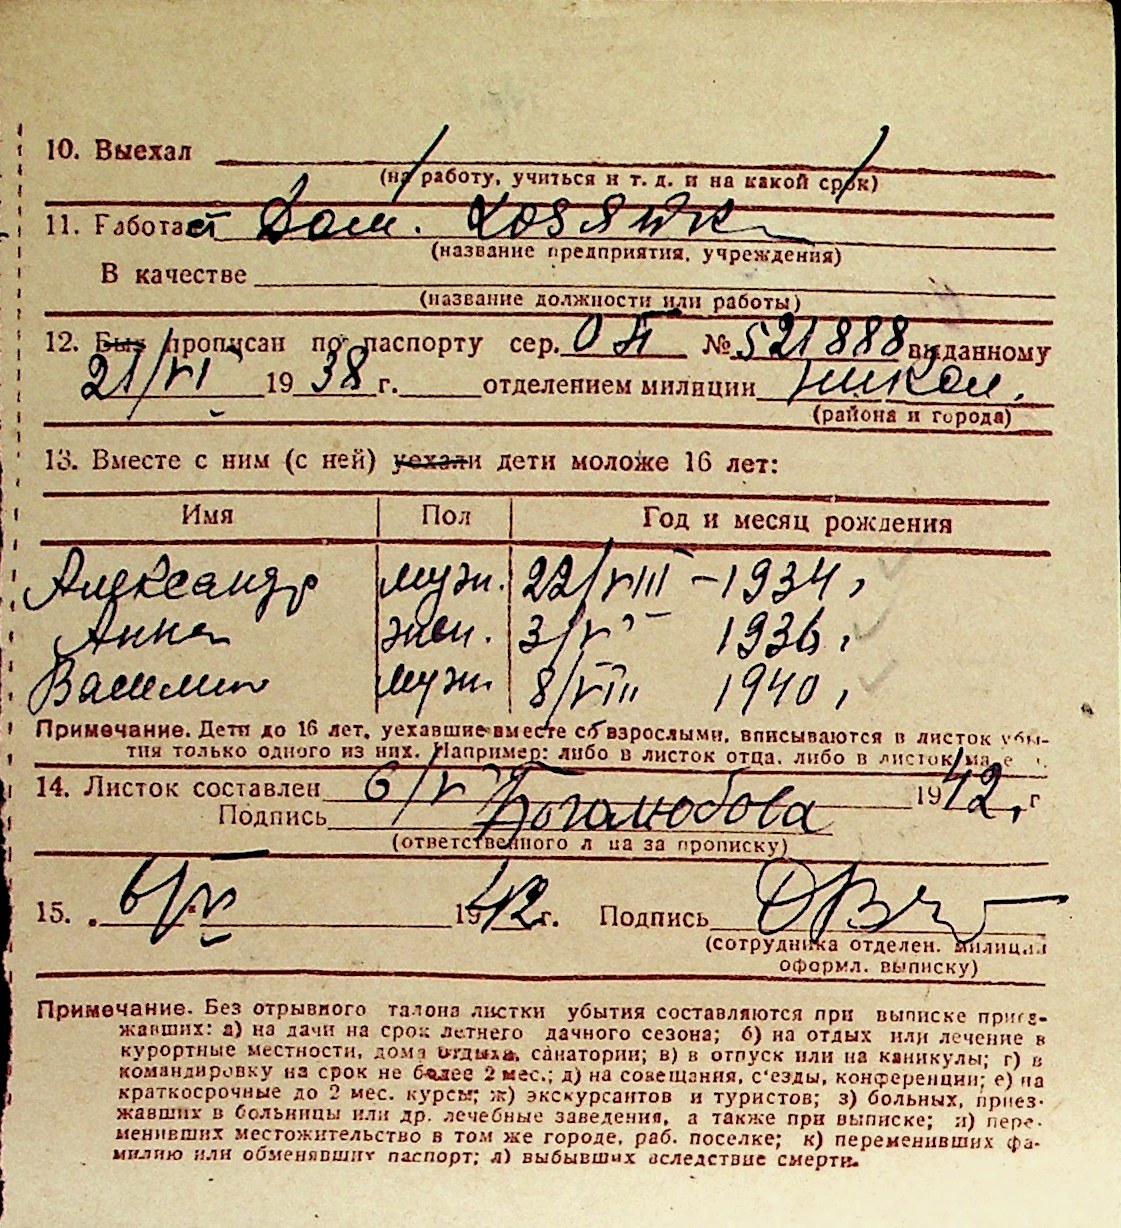 10. Выехал
(на работу, учиться и т. д. и на какой срок)
11. Работает Дом. хозяйка
(название предприятия, учреждения)
В качестве
(название должности или работы)
12. Был прописан по паспорту сер. № 521888 выданному
21/VI 1938 г. отделением милиции Никол.
(района и города)
13. Вместе с ним (с ней) уехали дети моложе 16 лет:
Имя Пол Год и месяц рождения
Александр муж. 22/VIII – 1934,
Анна жен. 1936,
Василий муж. 8/VIII 1940,
Примечание. Дети до 16 лет, уехавшие вместе со взрослыми, вписываются в листок убы-
тия только одного из них. Например: либо в листок отца, либо в листок
14. Листок составлен 1942, г
Подпись Боголюбова
(ответственного лица за прописку)
15. 1942 г. Подпись
(сотрудника отделен. милиции
оформл. выписку)
Примечание. Без отрывного талона листки убытия составляются при выписке приез-
жавших: а) на дачи на срок летнего дачного сезона; б) на отдых или лечение в
курортные местности, дома отдыха, санатории; в) в отпуск или на каникулы; г) в
командировку на срок не более 2 мес.; д) на совещания, с'езды, конференции; е) на
краткосрочные до 2 мес. курсы; ж) экскурсантов и туристов; з) больных, приез-
жавших в больницы или др. лечебные заведения, а также при выписке; и) пере-
менивших местожительство в том же городе, раб. поселке; к) переменивших фа-
милию или обменявших паспорт; л) выбывших вследствие смерти.